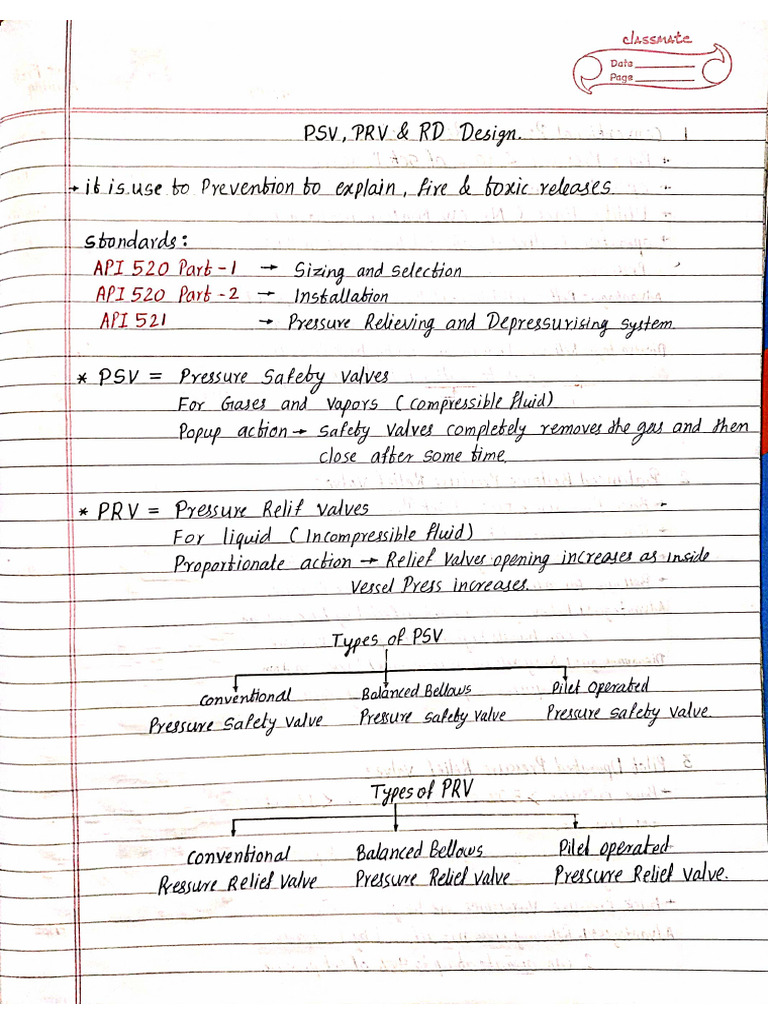 classmate
Date
Page
PSV, PRV & RD Design.
→ it is use to Prevention to explain, fire & toxic releases.
Standards:
API 520 Part-1 → Sizing and selection
API 520 Part-2 → Installation
API 521 → Pressure Relieving and Depressurising system.
* PSV = Pressure Safety valves
For Gases and vapors (compressible fluid)
Popup action → Safety valves completely removes the gas and then
close after some time.
* PRV = Pressure Relif valves
For liquid (Incompressible fluid)
Proportionate action → Relief valves opening increases as inside
vessel Press increases.
Types of PSV
Conventional Balanced Bellows Pilet Operated
Pressure Safety valve Pressure Safety valve Pressure Safety valve.
Types of PRV
Conventional Balanced Bellows Pilet operated
Pressure Relief valve Pressure Relief valve Pressure Relief valve.